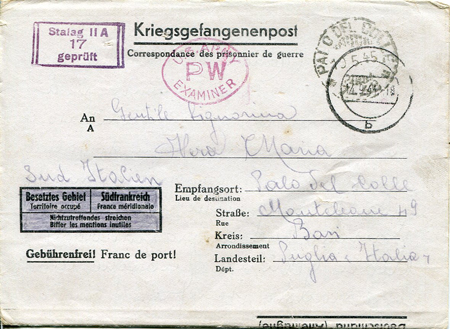 Stalag II A
17
geprüft
Kriegsgefangenenpost
Correspondance des prisonnier de guerre
U.S. ARMY
PW
EXAMINER
PALO DEL COLLE
b
An
A
Gentile Signorina
Maria
Sud Italien
Besetztes Gebiet
Territoire occupé
Südfrankreich
France méridionale
Nichtzutreffendes streichen
Biffer les mentions inutiles
Empfangsort: Palo del Colle
Lieu de destination
Straße: 49
Rue
Kreis: Bari
Arrondissement
Landesteil: Puglia Italia
Dépt.
Gebührenfrei! Franc de port!
Deutschland (Allemagne)